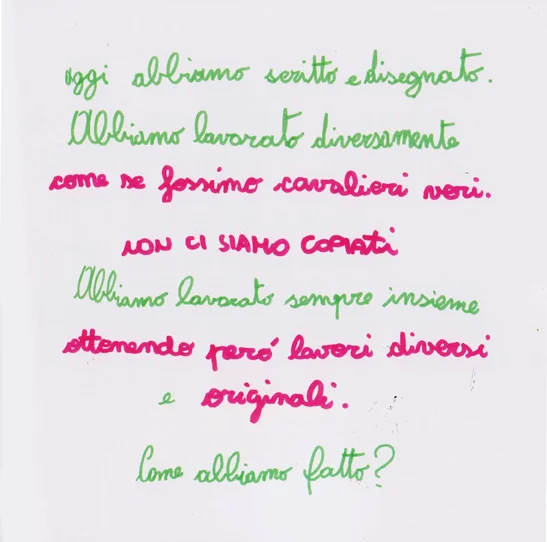 oggi abbiamo scritto e disegnato.
Abbiamo lavorato diversamente
come se fossimo cavalieri veri.
NON CI SIAMO COPIATI
Abbiamo lavorato sempre insieme
ottenendo peró lavori diversi
e originali.
Come abbiamo fatto?